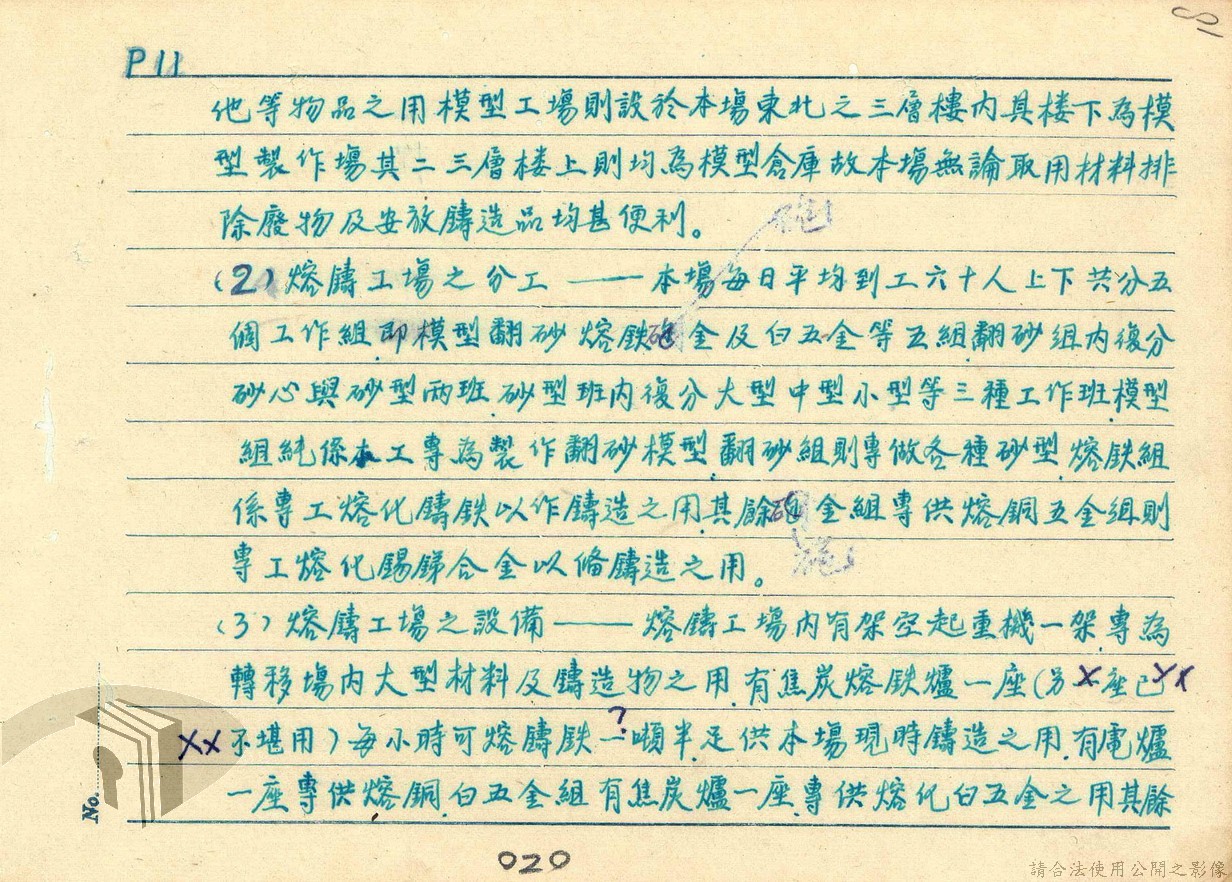 P11
他等物品之用模型工場則設於本場東北之三層樓內其楼下為模
型製作場其二三層楼上則均為模型倉庫故本場無論取用材料排
除廢物及安放鑄造品均甚便利。
(2)熔鑄工場之分工——本場每日平均到工六十人上下共分五
個工作組即模型翻砂熔鉄砲金及白五金等五組翻砂組内復分
砂心與砂型兩班.砂型班内復分大型中型小型等三種工作班.模型
組純係木工專為製作翻砂模型.翻砂組則專做各種砂型.熔鉄組
係專工熔化鑄鉄以作鑄造之用.其餘砲金組專供熔銅五金組則
專工熔化錫銻合金以俻鑄造之用。
(3)熔鑄工場之設備——熔鑄工場内有架空起重機一架專為
轉移場内大型材料及鑄造物之用.有焦炭熔鉄爐一座(另 座已
不堪用)每小時可熔鑄鉄一噸半足供本場現時鑄造之用.有電爐
一座專供熔銅.白五金組有焦炭爐一座.專供熔化白五金之用其餘
No.
020
請合法使用公開之影像